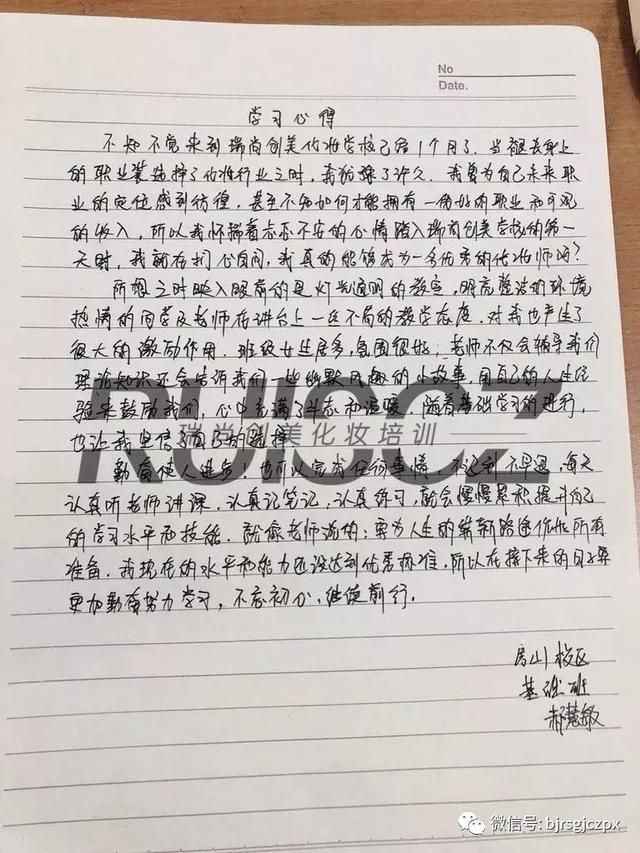 No
Date.
学习心得
不知不觉来到瑞尚创美化妆学校已经1个月了,当褪去身上
的职业装选择了化妆行业之时,我犹豫了许久。我曾为自己未来职
业的定位感到彷徨,甚至不知如何才能拥有一份好的职业和可观
的收入,所以我怀揣着忐忑不安的心情踏入瑞尚创美学校的第一
天时,我就在扪心自问,我真的能够成为一名优秀的化妆师吗?
所想之时映入眼帘的是灯光通明的教室,明亮整洁的环境
热情的同学及老师在讲台上一丝不苟的教学态度,对我也产生了
很大的激励作用。班级女生居多,氛围很好,老师不仅会辅导我们
理论知识还会告诉我们一些幽默风趣的小故事,用自己的人生经
验来鼓励我们,心中充满了斗志和温暖。随着基础学习的进行,
也让我坚信了自己的选择
勤奋使人进步!也可以完成任何事情,不迟到不早退,每天
认真听老师讲课,认真记笔记,认真练习,就会慢慢累积提升自己
的学习水平和技能。就像老师说的:要为人生的崭新路途做好所有
准备。我现在的水平和能力还没达到优秀标准,所以在接下来的日子要
更加勤奋努力学习,不忘初心,继续前行。
房山校区
基础班
郝慧敏
RUISCZ
瑞尚创美化妆培训
微信号: bjrsgjczpx